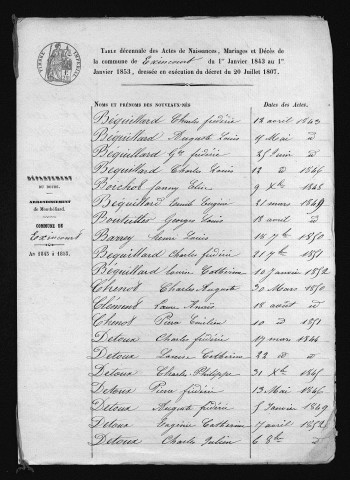 TIMBRE IMPÉRIAL
TABLE décennale des Actes de Naissances, Mariages et Décès de
la commune de Exincourt du 1er Janvier 1843 au 1er
Janvier 1853, dressée en exécution du décret du 20 Juillet 1807.
DÉPARTEMENT
DU DOUBS.
ARRONDISSEMENT
de Montbéliard.
COMMUNE DE
Exincourt
AN 1843 à 1853.
NOMS ET PRÉNOMS DES NOUVEAUX-NÉS Dates des Actes.
Béquillard Charles frédéric 12 avril 1843
Béquillard Auguste Louis 9 Mai d
Béquillard Ge frédéric 25 Juin d
Béquillard Charles Louis 12 d 1846
Borchot fanny Elise 9 Xbre 1848
Béquillard Emile Eugène 21 mars 1849
Bouteiller Georges Louis 18 avril d
Barney Henri Louis 18 7bre 1850
Béquillard Charles frédéric 21 7bre 1851
Béquillard Louise Catherine 10 Janvier 1852
Chenot Charles Auguste 30 Mars 1850
Clément Laure Anaïs 18 août d
Chenot Pierre Emilien 10 d 1851
Detoux Charles frédéric 17 mars 1844
Detoux Louise Catherine 22 d d
Detoux Charles Philippe 31 Xbre 1845
Detoux Pierre frédéric 13 Mai 1846
Detoux Auguste frédéric 5 Janvier 1849
Detoux Eugénie Catherine 17 avril 1852
Detoux Charles Julien 6 8bre d